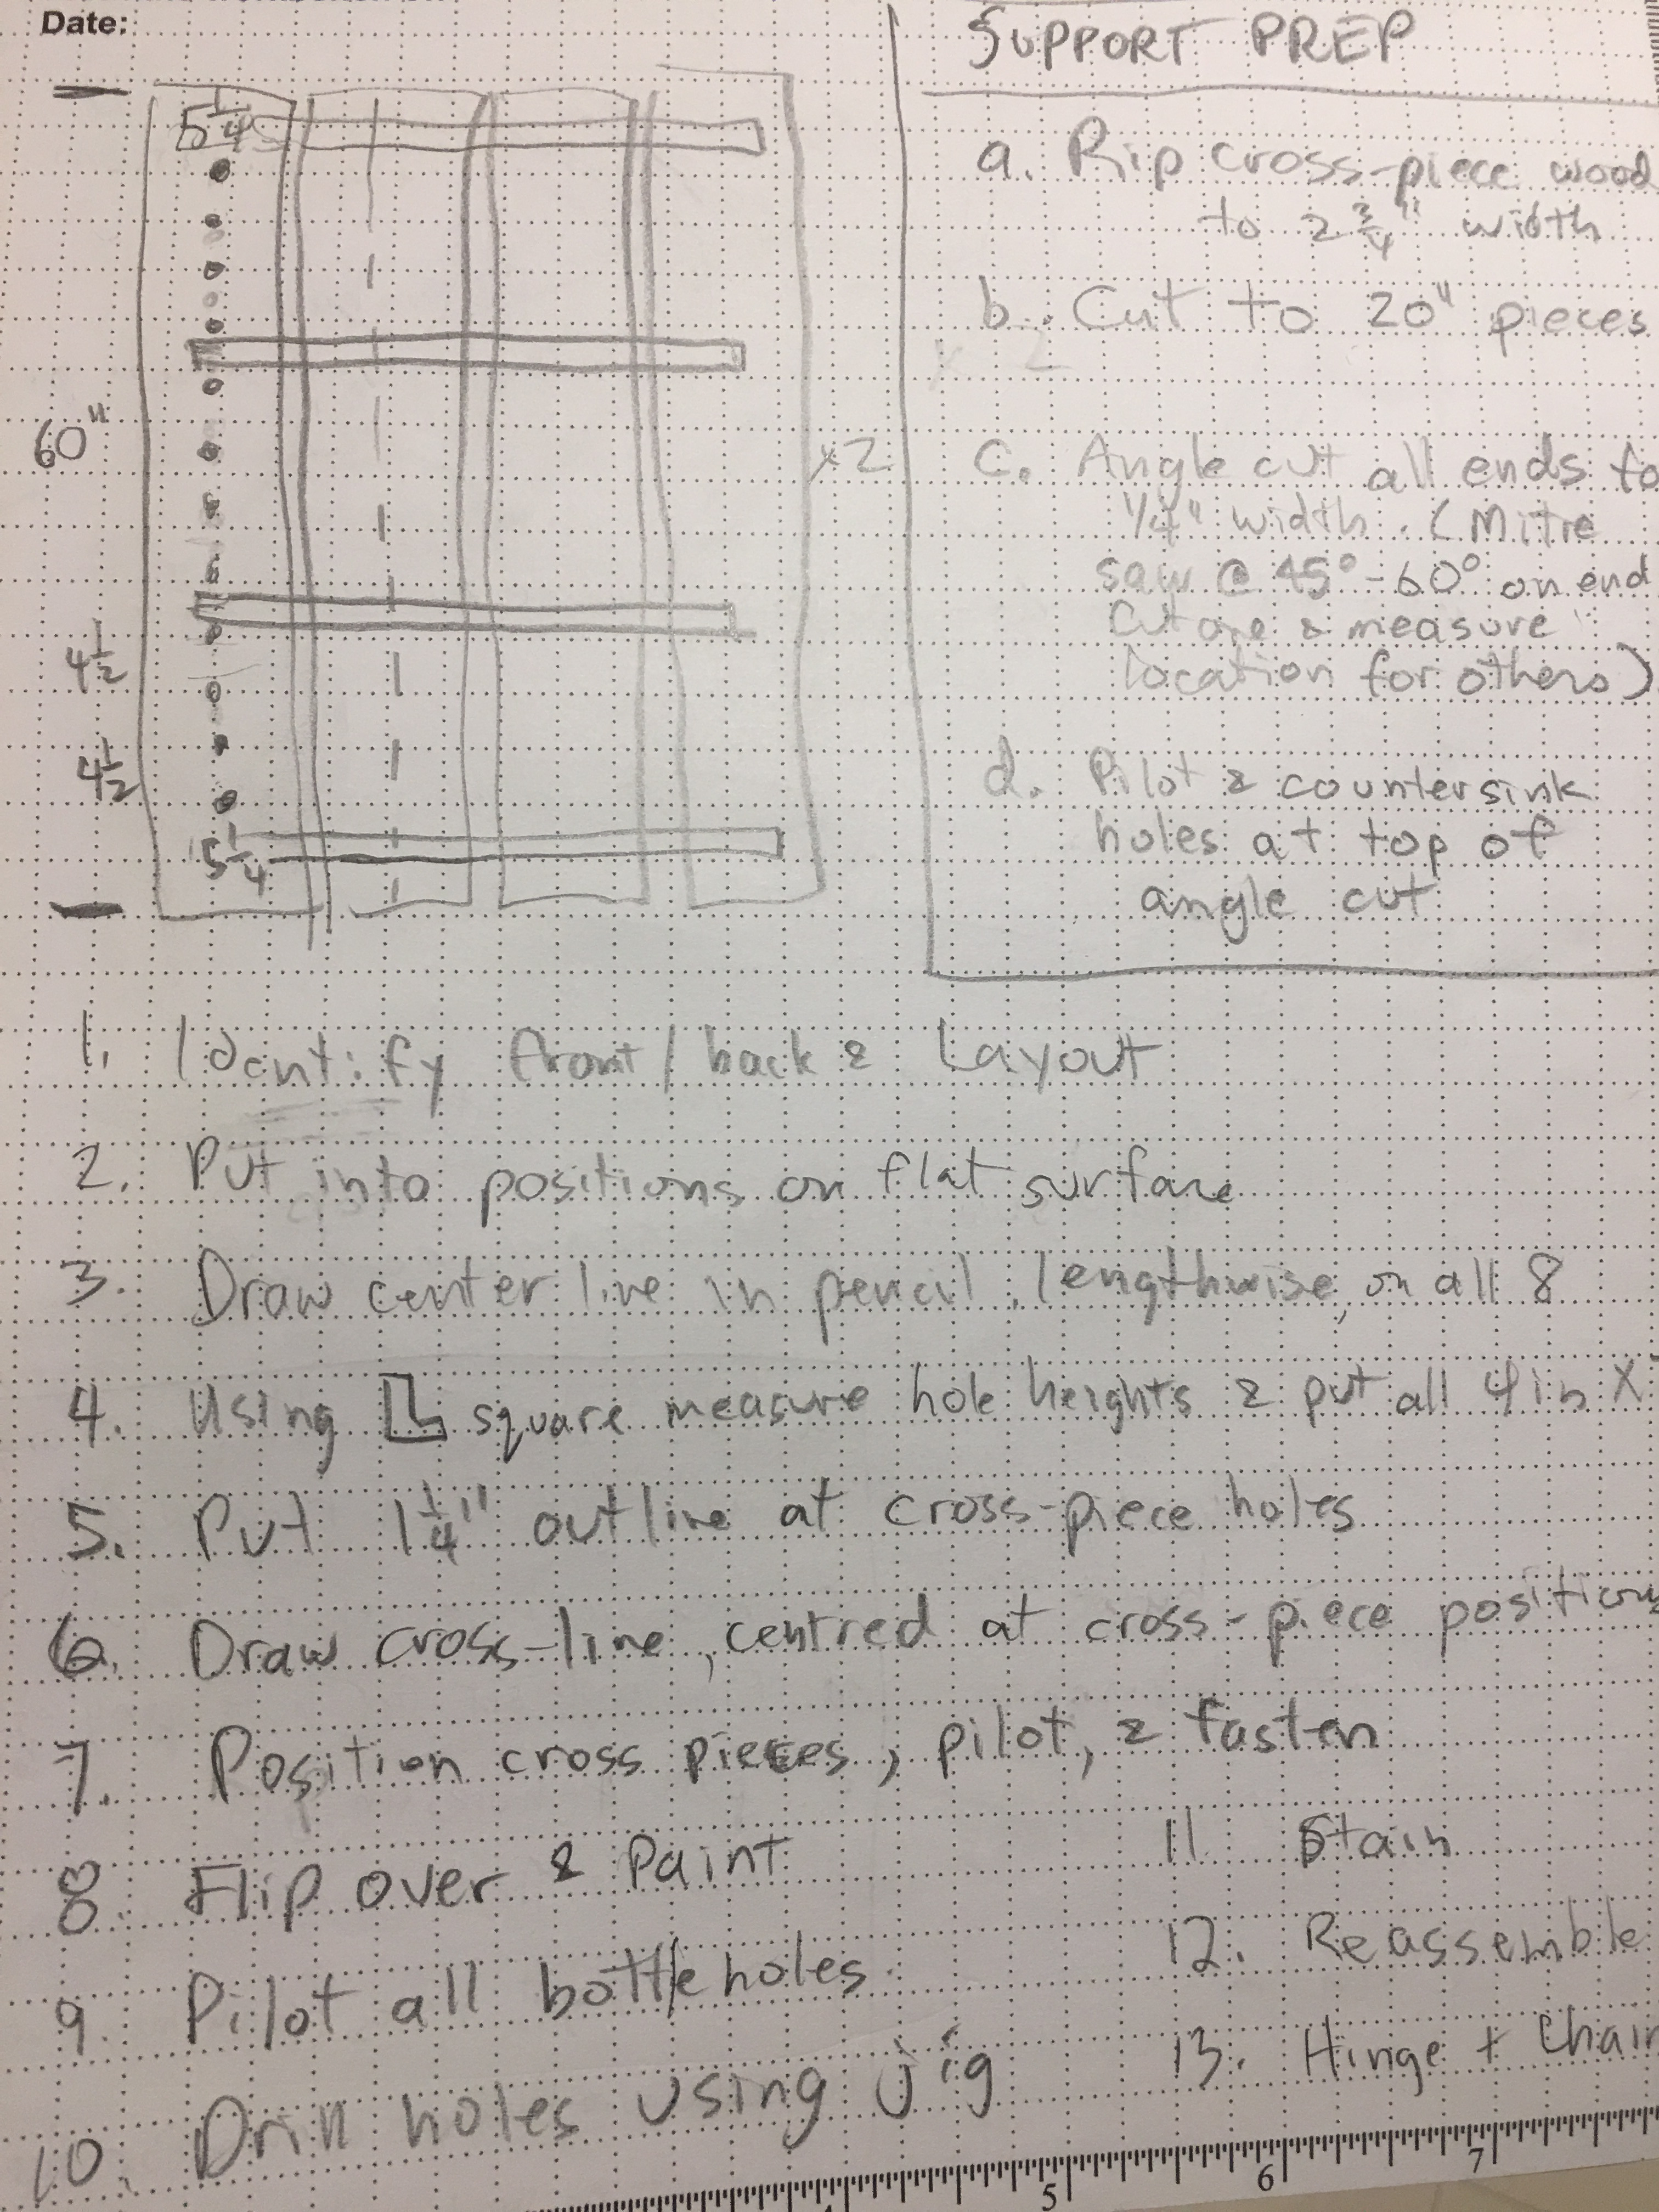 Date:
5 1/4
60"
4 1/2
4 1/2
5 1/4
x2
SUPPORT PREP
a. Rip cross-piece wood
to 2 3/4" width
b. Cut to 20" pieces
c. Angle cut all ends to
1/4" width. (Mitre
saw @ 45°-60° on end
cut one & measure
location for others)
d. Pilot & countersink
holes at top of
angle cut
1. Identify front/back & Layout
2. Put into positions on flat surface
3. Draw center line in pencil, lengthwise, on all 8
4. Using square measure hole heights & put all 4 in X
5. Put 1 1/4" outline at cross-piece holes
6. Draw cross-line, centred at cross-piece positions
7. Position cross pieces, pilot, & fasten
8. Flip over & Paint
9. Pilot all bottle holes
10. Drill holes using jig
11. Stain
12. Reassemble
13. Hinge + Chain
5
6
7